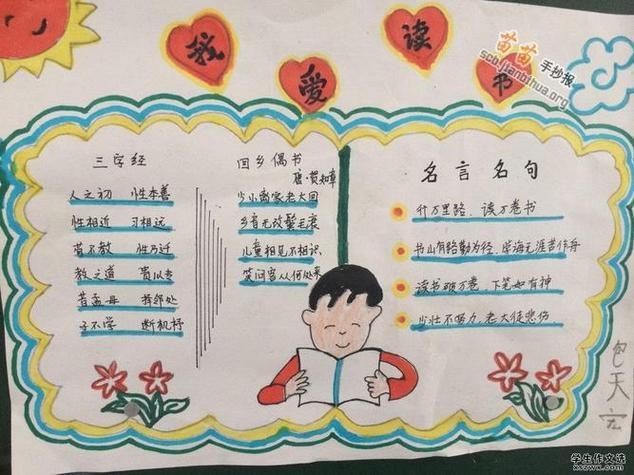 我爱读书
苗苗手抄报
scb.jianbihua.org
三字经
人之初 性本善
性相近 习相远
苟不教 性乃迁
教之道 贵以专
昔孟母 择邻处
子不学 断机杼
回乡偶书
唐·贺知章
少小离家老大回
乡音无改鬓毛衰
儿童相见不相识
笑问客从何处来
名言名句
行万里路、读万卷书
书山有路勤为径,学海无涯苦作舟
读书破万卷、下笔如有神
少壮不努力,老大徒悲伤
包天
学生作文选